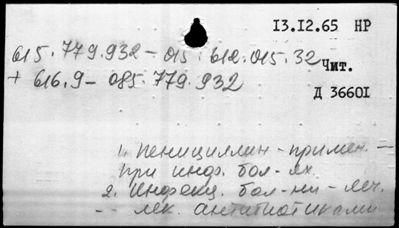 13.12.65 НР
615.779.932 – 015 : 612.015.32
Чит.
+ 616.9 – 085.779.932
Д 36601
1. Пенициллин – примен. –
при инф. бол-ях.
2. Инфекц. бол-ни – леч.
– лек. антибиотиками